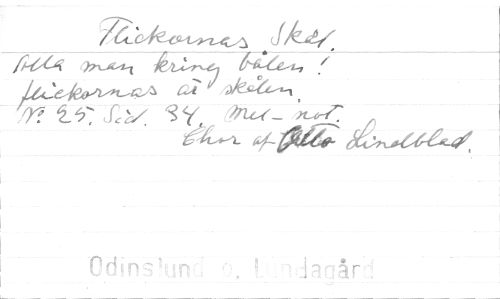 Flickornas Skål.
Alla man kring bålen!
flickornas är skålen.
No 25. Sid. 34. Mel-not.
Chor af Otto Lindblad.
Odinslund o. Lundagård